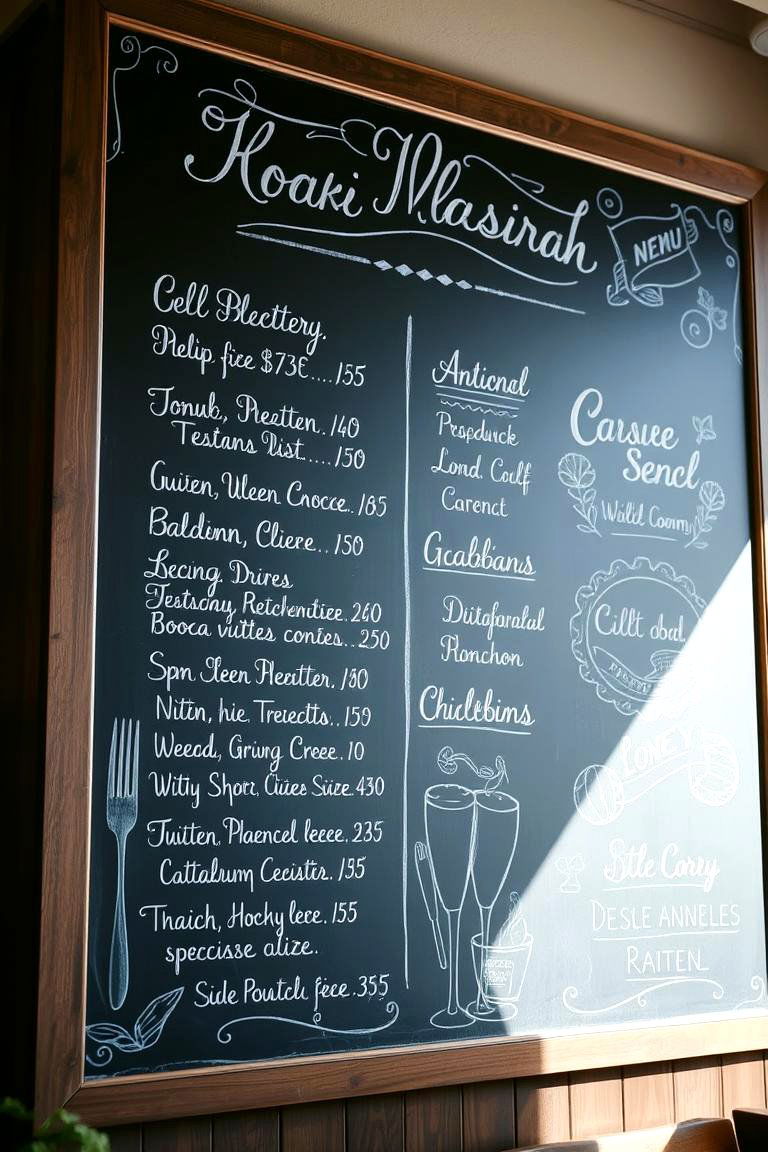 Hoaki Mlasirah
NENU
Cell Blecttery.
Pelip. fice $73E....155
Tonub, Pleatten. 140
Testans Plist.....150
Guiien, Uleen Cnocce..185
Baldinn, Cliere...150
Lecing, Drires
Testsony, Retchendtiee. 260
Booca vuttes conies...250
Spm Jleen Pleetter. 180
Nitin, hie. Trevectts..159
Weecd, Griung Cree. 10
Witty Short, Ciues Size. 430
Tuitten, Plaencel leece. 235
Cattalum Cecistir. 195
Thaich, Hochy leee. 155
speccisse alize.
Side Poutch fece. 355
Anticnal
Lond. Coclf
Carenct
Gcabbians
Diitafaralul
Ronchon
Chicletbims
Carsuee
Sencl
Wallit Coorn
Cillt obal.
LONEY
Stle Corey
DESLE ANNELES
RAITEN.